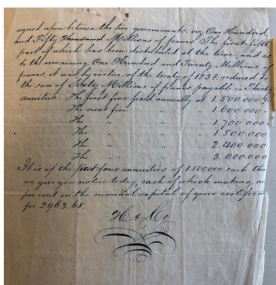 agreed upon between the two governments viz One Hundred
and Fifty Thousand Millions of francs. The first fifth
part of which has been distributed at the time; and as
to the remaining One Hundred and Twenty Millions of
francs, it was by virtue of the treaty of 1838 reduced to
the sum of Sixty Millions of francs, payable in Thirty
annuities. The first five fixed annually at 1.500.000 fr
The next five 1.600.000
The 1.700.000
The 1.800.000
The 2.400.000
The 3.000.000
It is of the first four annuities of 1500.000 each that
we give you notice today, each of which making
percent on the nominal capital of your certificate
for 2963.68
H & Co